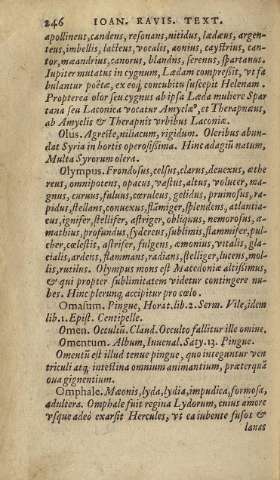 246 IOAN. RAVIS. TEXT.
apollineus, candens, resonans, nitidus, lædæus, argen-
teus, imbellis, lacteus, vocalis, aonius, caystrius, can-
tor, mæandrius, canorus, blandus, serenus, spartanus.
Iupiter mutatus in cygnum, Lædam compressit, vt fa
bulantur poëtæ, ex eoq́; concubitu suscepit Helenam.
Propterea olor seu cygnus ab ipsa Læda muliere Spar
tana seu Laconica vocatur Amyclæ⁹, et Therapnæus,
ab Amyclis & Therapnis vrbibus Laconiæ.
Olus. Agreste, niliacum, rigidum. Oleribus abun-
dat Syria in hortis operosissima. Hinc adagiũ natum,
Multa Syrorum olera.
Olympus. Frondosus, celsus, clarus, deuexus, æthe
reus, omnipotens, opacus, vastus, altus, volucer, ma-
gnus, curuus, fuluus, cœruleus, gelidus, pruinosus, ra-
pidus, stellans, conuexus, flāmiger, splendens, atlantia-
cus, ignifer, stellifer, astriger, obliquus, nemorosus, a-
mathius, profundus, sydereus, sublimis, flammifer, pul-
cher, cœlestis, astrifer, fulgens, æmonius, vitalis, gla-
cialis, ardens, flammans, radians, stelliger, lucens, mol-
lis, rutilus. Olympus mons est Macedoniæ altissimus,
& qui propter sublimitatem videtur contingere nu-
bes. Hinc plerunq; accipitur pro cœlo.
Omasum. Pingue, Horat. lib. 2. Serm. Vile, idem
lib. 1. Epist. Centipelle.
Omen. Occultũ. Claud. Occulto fallitur ille omine.
Omentum. Album, Iuuenal. Saty. 13. Pingue.
Omentũ est illud tenue pingue, quo integuntur ven
triculi atq; intestina omnium animantium, præterquā
oua gignentium.
Omphale. Mæonis, lyda, lydia, impudica, formosa,
adultera. Omphale fuit regina Lydorum, cuius amore
vsque adeo exarsit Hercules, vt ea iubente fusos &
lanas